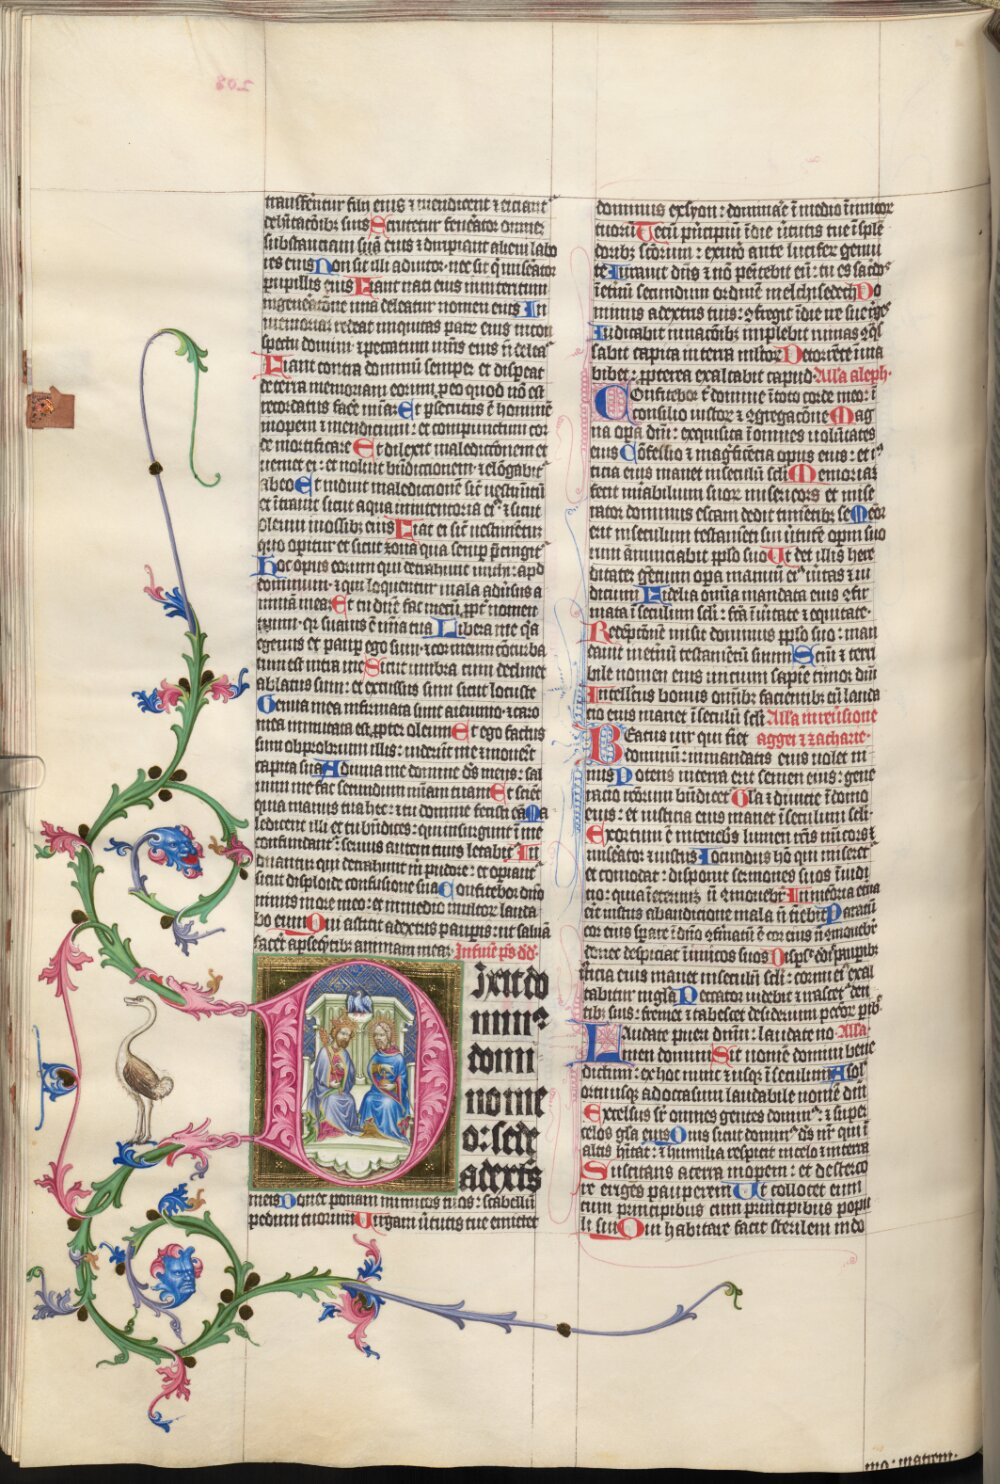 transferentur filii eius ⁊ mendicent ⁊ eiciant᷑
suis Scrutetur fenerator omnē
substanciam suā eius ⁊ diripiant alieni labo
res eius Non sit illi adiutor: nec sit q̇ misereatur
pupillis eius Fiant nati eius in interitum
in generacōne una deleatur nomen eius In
memoriam redeat iniquitas patrū eius in con
spectu domini: ⁊ peccatum mr̄is eius nō delea᷑
Fiant contra dominū semper et dispeat
de terra memoriam eorum: p eo quod nō est
recordatus facē mīam Et psecutus ē hominē
inopem ⁊ mendicum: et compunctum cor
de mortificare Et dilexit maledictōnem et
ueniet ei: et noluit bn̄dictionem ⁊ elōgabit᷑
ab eo Et induit maledictionē sic̄ uestimētū
et ītrauit sicut aqua in interiora eꝰ: ⁊ sicut
oleum in ossibꝫ eius Fiat ei sic̄ uestimētum
quo opitur et sicut zona qua semp p̄cingit᷑
Hoc opus eorum qui detrahunt michi: apd
dominum: ⁊ qui loquentur mala aduīsus a
nimā meā Et tu dn̄e fac mecū ꝓpt̄ nomen
tuum: qꝛ suauis ē mīa tua Libera me qꝛ
egenus et paup ego sum: ⁊ cor meum cōturba
tum est intra me Sicut umbra cum declinet
ablatus sum: et excussus sum sicut locuste
Genua mea infirmata sunt a ieiunio: ⁊ caro
mea inmutata est ꝓpter oleum Et ego factus
sum obprobrium illis: uiderūt me ⁊ mouerūt
capita sua Adiuua me domine dꝭ meus: sal
uum me fac secundum mīam tuam Et sciāt
quia manus tua hec: ⁊ tu domine fecisti eā Ma
ledicent illi et tu bn̄dices: qui insurgunt ī me
confundant᷑: seruus autem tuus letabit᷑ In
duantur qui detrahunt m̄ pudore: et opiant᷑
sicut diploide confusione sua Confitebor dn̄o
nimis in ore meo: et in medio multoꝝ lauda
bo eum Qui astitit a dextris paupis: ut saluā
facēt a pseqn̄tibꝫ animam meā
Dixit do
minꝰ
domi
no me
o: sede
a dext̄s
meis Donec ponam inimicos tuos: scabellū
pedum tuorum Uirgam ūtutis tue emittet
dominus ex syon: domīare ī medio īimicoꝝ
tuorū Tecū pn̄cipiū ī die ūtutis tue ī splē
doribꝫ sc̄orum: ex utō ante lucifeꝝ genui
te Iurauit dn̄s ⁊ nō penitebit eū: tu es sac̄dos
ī etnū secundum ordinē melchisedech Do
minus a dextris tuis: ꝯfregit ī die ire sue reges
Iudicabit in nacōibꝫ implebit ruinas ꝯq̄s
sabit capita in terra multoꝝ De torrēte ī uia
bibet: ꝓpterea exaltabit capud Alla aleph
Confitebor t̄ domine ī toto corde meo: ī
consilio iustoꝝ ⁊ ꝯgregacōne Mag
na opa dn̄i: exquisita ī omnes uolūtates
eius Cōfessio ⁊ mag̈ficēcia opus eius: et iꝰ
ticia eius manet in seculū scl̄i Memoriam
fecit mirabilium suoꝝ misericors et mise
rator dominus escam dedit timētibꝫ se Memor
erit in seculum testamēti sui ūtutē opm̄ suo
rum ānunciabit pplo suo Ut det illis here
ditatē gēcium: opa manuū eꝰ ūitas ⁊ iu
dicium Fidelia omīa mandata eius ꝯfir
mata ī seculum scl̄i: fc̄a ī ūitate ⁊ equitate
Redēpcōnē misit dominus pplo suo: man
dauit in etnū testamētū suum Sc̄m ⁊ terri
bile nomen eius: inicium sapīe timor dn̄i
Intellectus bonus omībꝫ facientibꝫ eū: lauda
cio eius manet ī seculū scl̄i Alla in reūsione
Beatus uir qui timet aggei ⁊ zacharie
dominū: in mandatis eius uolet ni
mis Potens in terra erit semen eius: gene
racio rc̄orum bn̄dicet᷑ Gl̄a ⁊ diuicie ī domo
eius: et iusticia eius manet ī seculum scl̄i
Exortum ē in tenebꝫ lumen rc̄is: mīcors ⁊
miserator ⁊ iustus Iocundus hō qui miseret᷑
et comodat: disponit sermones suos ī iudi
cio: quia ī etnum nō ꝯmouebit᷑ In memoria etna
erit iustus ab audicione mala nō timebit Paratū
cor eius spare ī dn̄o ꝯfirmatū ē cor eius nō ꝯmouebit᷑
donec despiciat īimicos suos Dispsit dedit paupibꝫ
iusticia eius manet in seculū scl̄i: cornu eꝰ exal
tabitur in gl̄ia Peccator uidebit ⁊ irascet᷑ den
tibꝫ suis: fremet ⁊ tabescet desiderium pcc̄oꝝ pibit
Laudate pueri dn̄um: laudate no Alla
men domini Sit nomē domini bene
dictum: ex hoc nunc ⁊ usqꝫ ī seculum A sol̄
ortu usqꝫ ad occasum laudabile nomē dn̄i
Excelsus sꝑ omnes gentes dominꝰ: ⁊ super
celos gl̄a eius Quis sicut dominꝰ dꝭ nr̄ qui ī
altis hitat: ⁊ humilia respicit in celo ⁊ in terra
Suscitans a terra inopem: et de sterco
re eriges pauperem Ut collocet eum
cum principibus cum principibus popu
li sui Qui habitare facit sterilem in do
mo: matrem